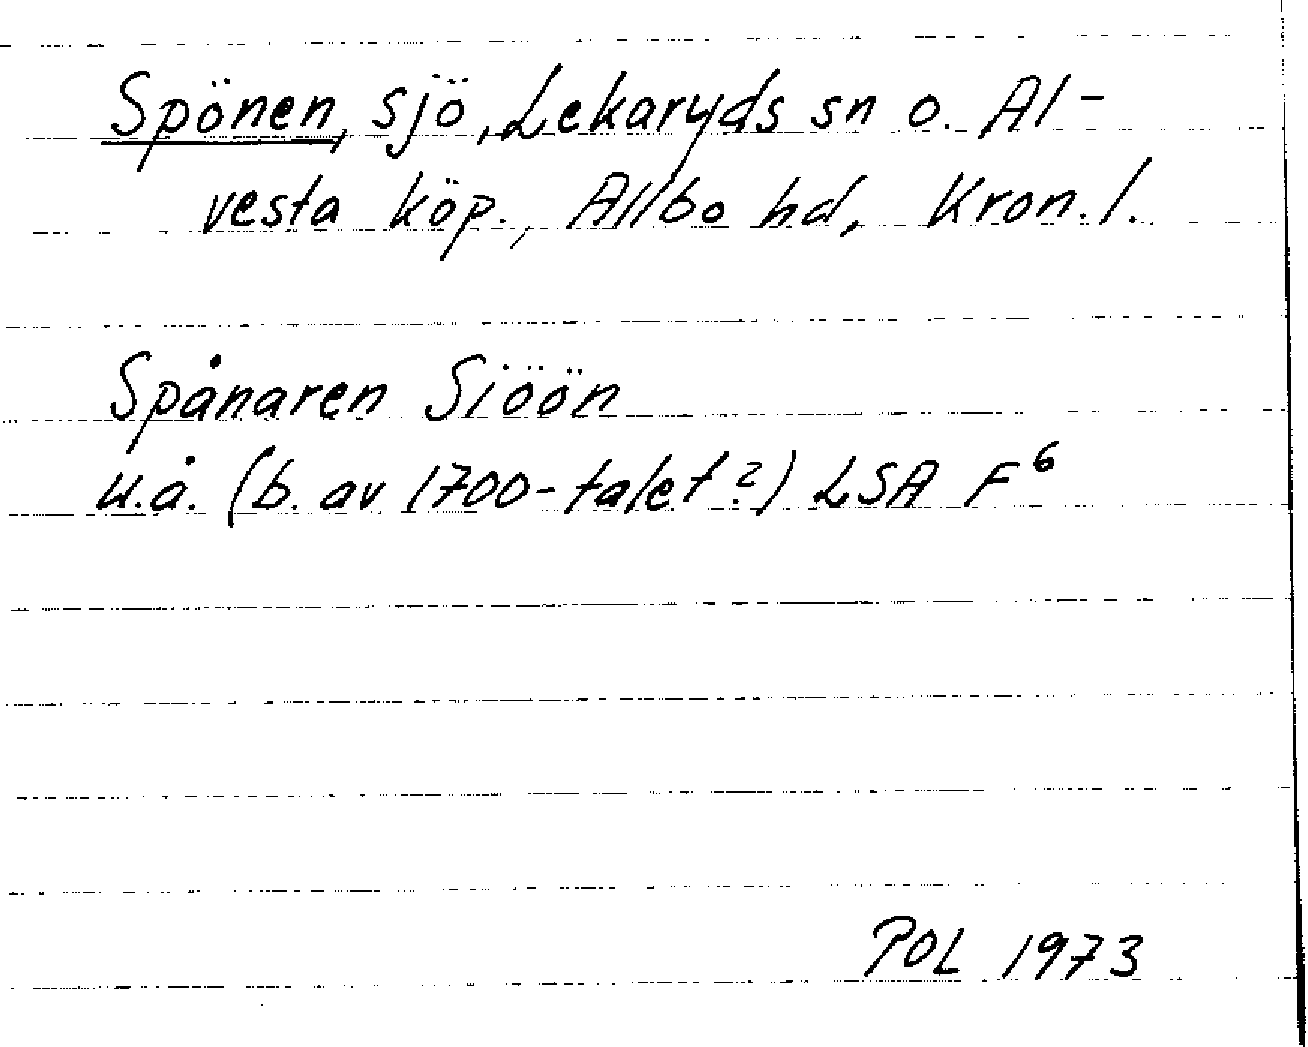 Spönen, sjö, Lekaryds sn o. Al-
vesta köp., Allbo hd, Kron. l.
Spånaren Siöön
u.å. (b. av 1700-talet?) LSA F⁶
POL 1973